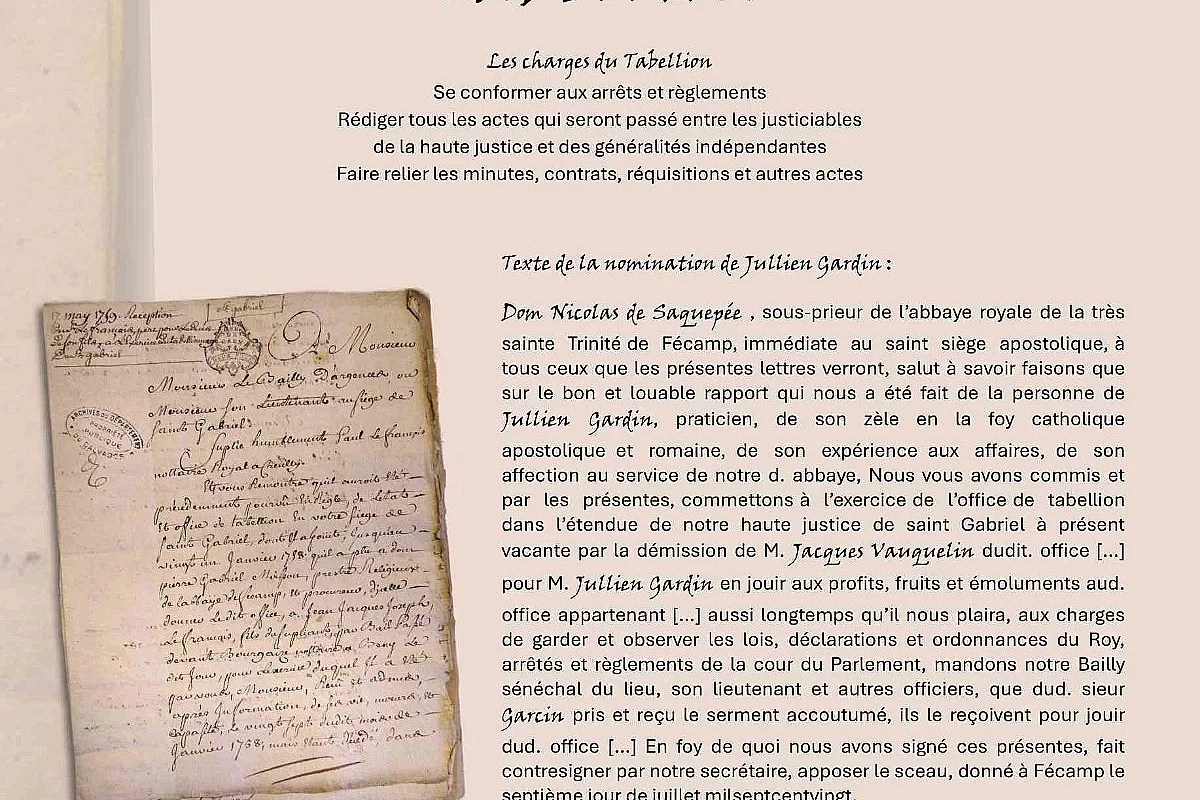 Les charges du Tabellion
Se conformer aux arrêts et règlements
Rédiger tous les actes qui seront passé entre les justiciables
de la haute justice et des généralités indépendantes
Faire relier les minutes, contrats, réquisitions et autres actes
Texte de la nomination de Jullien Gardin :
Dom Nicolas de Saquepée , sous-prieur de l'abbaye royale de la très
sainte Trinité de Fécamp, immédiate au saint siège apostolique, à
tous ceux que les présentes lettres verront, salut à savoir faisons que
sur le bon et louable rapport qui nous a été fait de la personne de
Jullien Gardin, praticien, de son zèle en la foy catholique
apostolique et romaine, de son expérience aux affaires, de son
affection au service de notre d. abbaye, Nous vous avons commis et
par les présentes, commettons à l'exercice de l'office de tabellion
dans l'étendue de notre haute justice de saint Gabriel à présent
vacante par la démission de M. Jacques Vauquelin dudit. office [...]
pour M. Jullien Gardin en jouir aux profits, fruits et émoluments aud.
office appartenant [...] aussi longtemps qu'il nous plaira, aux charges
de garder et observer les lois, déclarations et ordonnances du Roy,
arrêtés et règlements de la cour du Parlement, mandons notre Bailly
sénéchal du lieu, son lieutenant et autres officiers, que dud. sieur
Garcin pris et reçu le serment accoutumé, ils le reçoivent pour jouir
dud. office [...] En foy de quoi nous avons signé ces présentes, fait
contresigner par notre secrétaire, apposer le sceau, donné à Fécamp le
septième jour de juillet milseptcentvingt.
may 1769. Reception
St gabriel
A Monsieur
Monsieur Le Bailly D'argences, ou
Monsieur son Lieutenant au siège de
Saint Gabriel
Suplie humblement Paul Le françois
nottaire Royal a Creully
ARCHIVES DU DÉPARTEMENT
PROPRIÉTÉ
PUBLIQUE
DU CALVADOS
Et vous Remontre qu'il auroit été
précédemment pourvu
Et office de tabellion En votre siège de
Saint Gabriel,
vingt un Janvier 1758 qu'il a plu a dom
pierre Gabriel Religieux
de la abbaye de fecamp, Et procureur,
donner Le dit office, a Jean Jacques Joseph
Le françois, fils du supliant, par Bail
devant nottaire a
dit Jour, pour
par vous, Monsieur,
après Information, de sa vie, moeurs, et
le vingt sept dudit mois de
Janvier 1758, mais dans